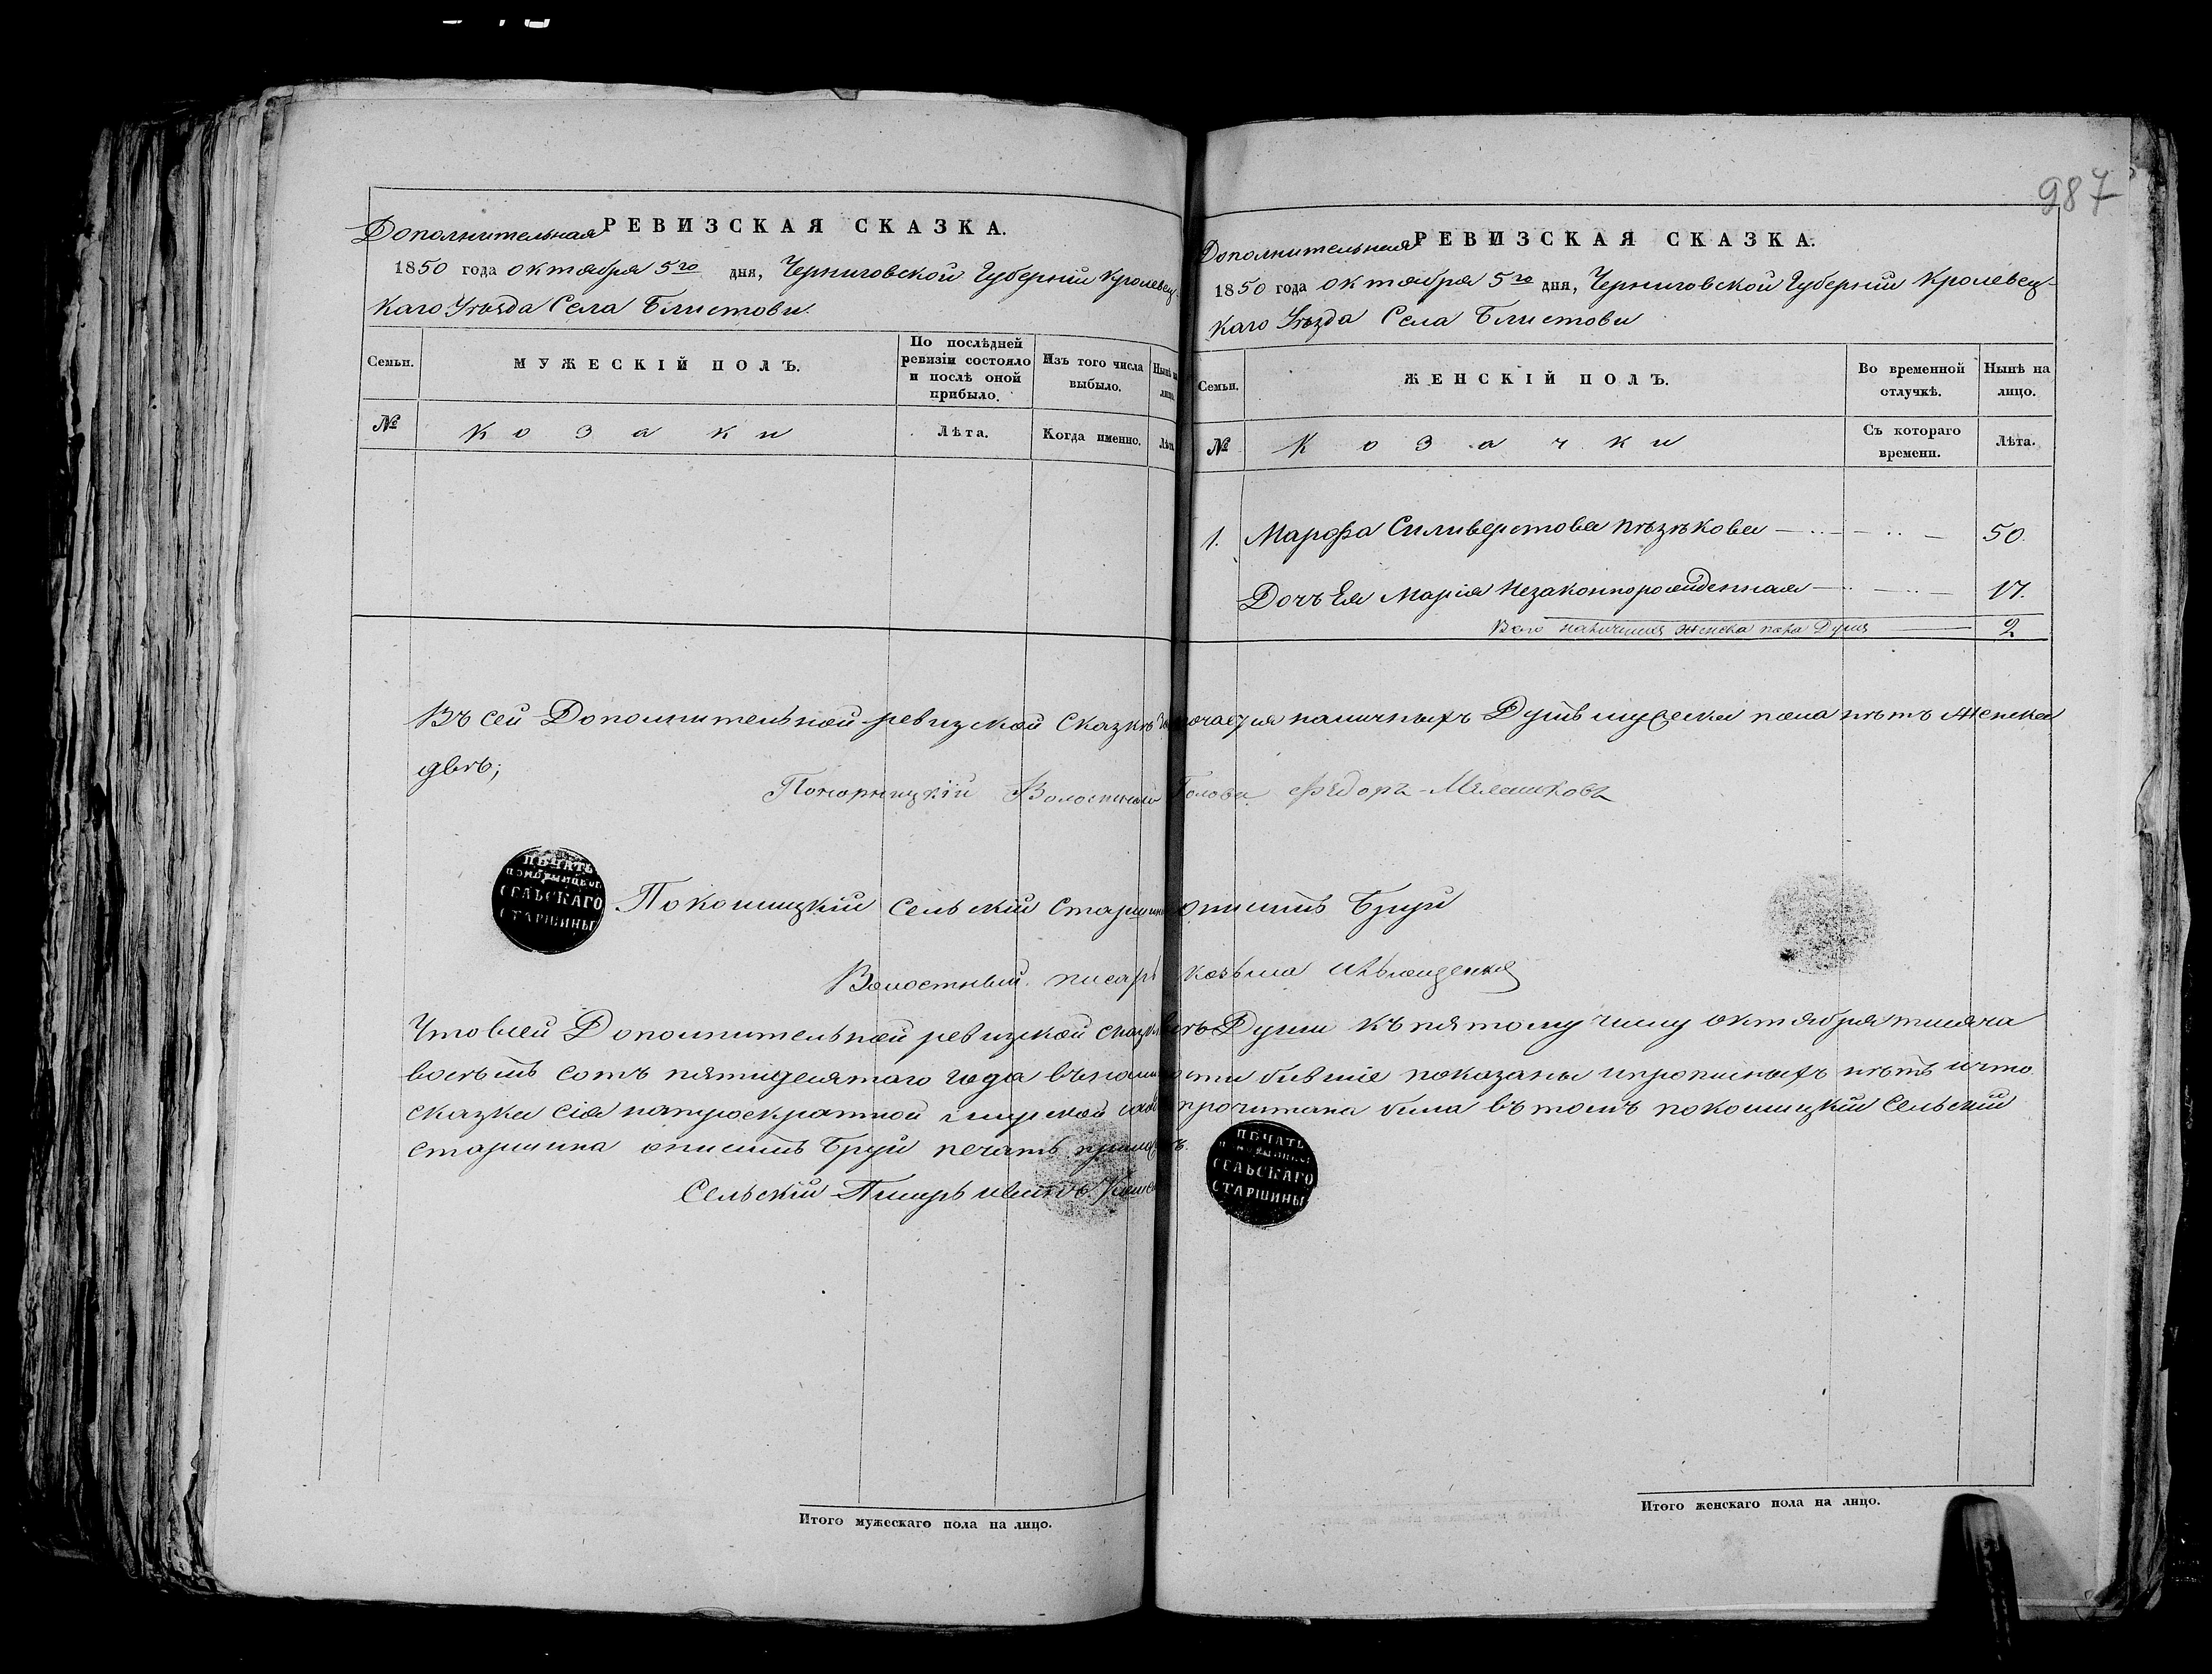 987
Дополнительная РЕВИЗСКАЯ СКАЗКА.
1850 года октября 5го дня, Черниговской Губерніи Кролевец-
каго Уѣзда Села Блистови.
Семьи.
МУЖЕСКІЙ ПОЛЪ.
По послѣдней ревизіи состояло и послѣ оной прибыло.
Изъ того числа выбыло.
Нынѣ на лицо.
№
Козаки
Лѣта.
Когда именно.
Лѣта
Дополнительная РЕВИЗСКАЯ СКАЗКА.
1850 года октября 5го дня, Черниговской Губерніи Кролевец-
каго Уѣзда Села Блистови
Семьи.
ЖЕНСКІЙ ПОЛЪ.
Во временной отлучкѣ.
Нынѣ на лицо.
№
Козачки
Съ котораго времени.
Лѣта.
1. Марфа Силиверстова 50.
Дочъ Ея Марія Незаконнорожденная 17.
Всего наличныхъ женска пола Душъ 2
Въ сей Дополнительной ревизской сказкѣ наличныхъ Душъ мужеска пола нѣтъ Женска
двѣ;
Понорницкій Волостный Голова Федоръ Мелашковъ
ПЕЧАТЬ
СЕЛЬСКАГО
СТАРШИНЫ
Покошицкій Сельскій Старшина Онисимъ Бруй
Волостный писарь козьма
Что всей Дополнительной ревизской сказкѣ всѣ Души къ пятому числу октября тисяча
восемъ сотъ пятидесятаго года бывшіе показаны и прописныхъ нѣтъ и что
сказка сія прочитана била въ томъ покошицкій Сельскій
старшина онисимъ Бруй печать приложилъ.
Сельскій Писарь
ПЕЧАТЬ
СЕЛЬСКАГО
СТАРШИНЫ
Итого мужескаго пола на лицо.
Итого женскаго пола на лицо.